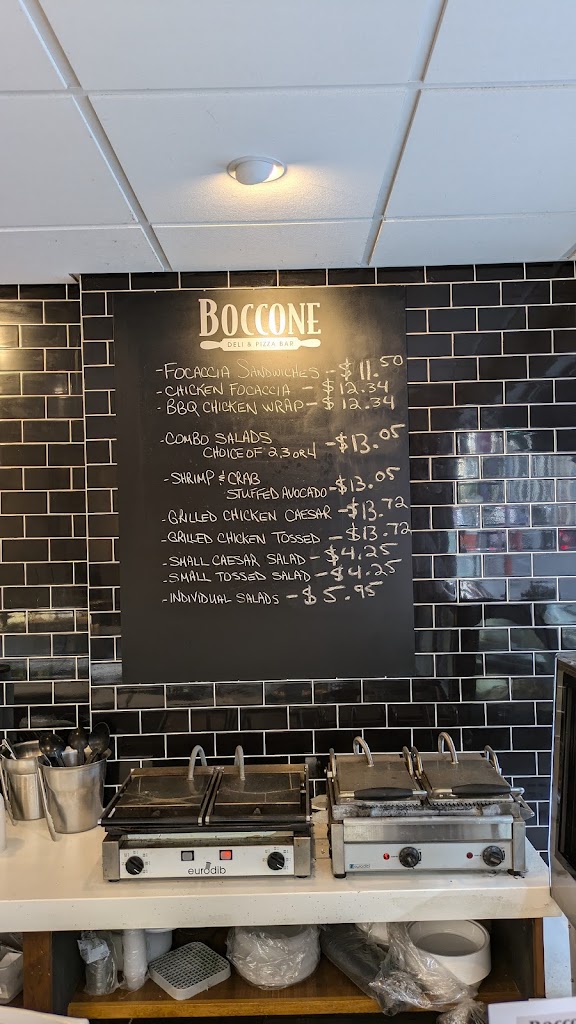 BOCCONE
DELI & PIZZA BAR
- FOCACCIA SANDWICHES - $11.50
- CHICKEN FOCACCIA - $12.34
- BBQ CHICKEN WRAP - $12.34
- COMBO SALADS
CHOICE OF 2,3 OR 4 - $13.05
- SHRIMP & CRAB
STUFFED AVOCADO - $13.05
- GRILLED CHICKEN CAESAR - $13.72
- GRILLED CHICKEN TOSSED - $13.72
- SMALL CAESAR SALAD - $4.25
- SMALL TOSSED SALAD - $4.25
- INDIVIDUAL SALADS - $5.95
eurodib
eurodib